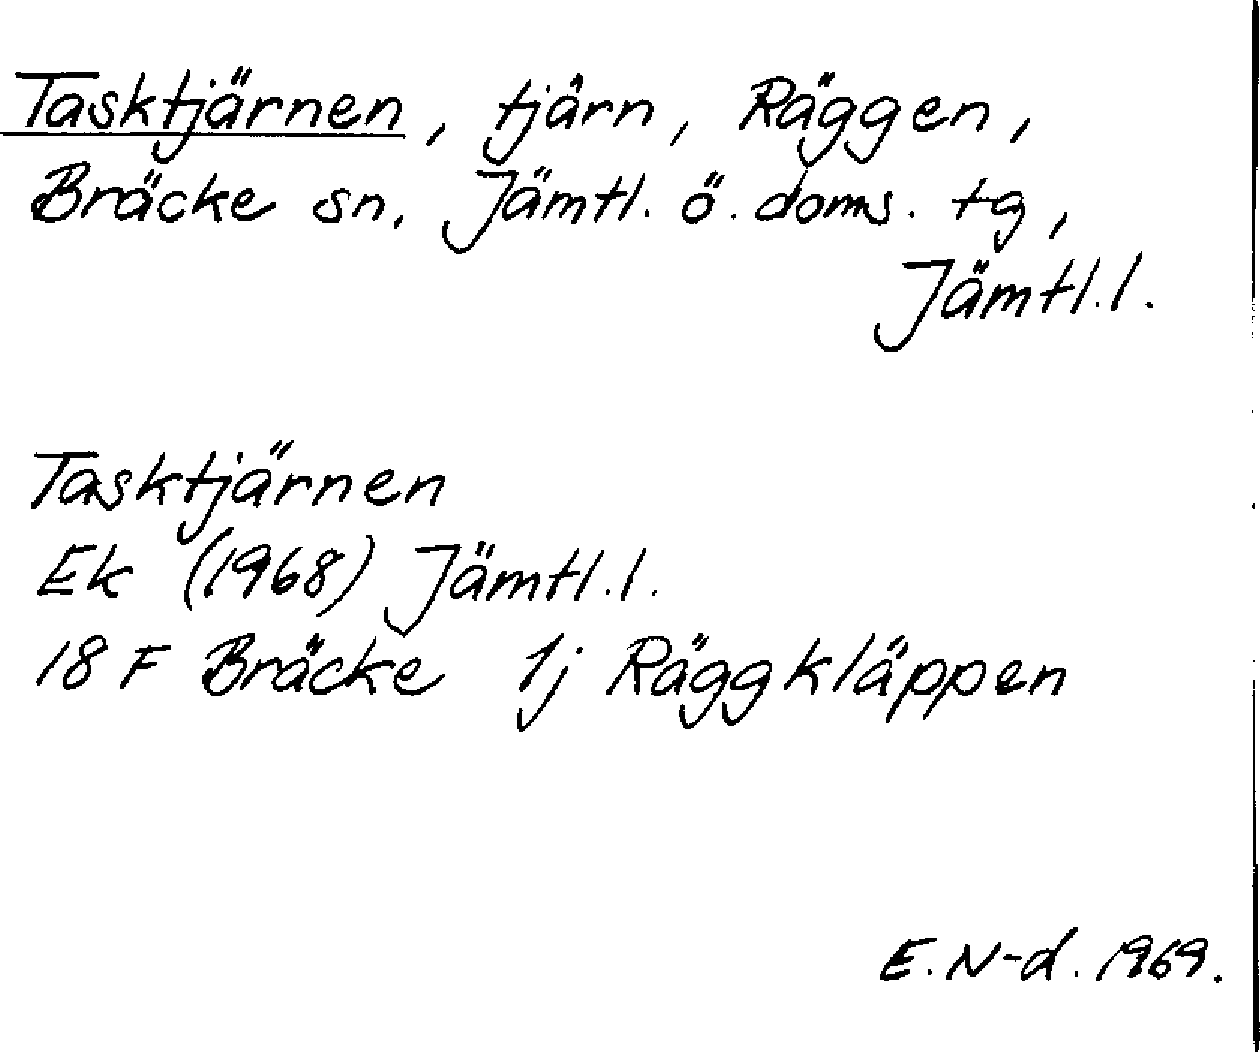 Tasktjärnen, tjärn, Räggen,
Bräcke sn, Jämtl. ö. doms. tg,
Jämtl. l.
Tasktjärnen
Ek (1968) Jämtl. l.
18 F Bräcke 1j Räggkläppen
E. N-d. 1969.